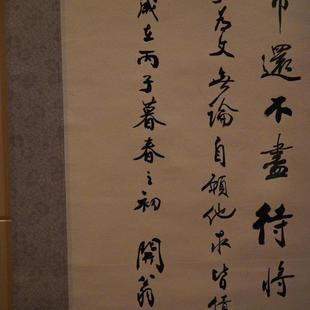 還不盡待將
為文無論自願他求皆債
歲在丙子暮春之初 開翁